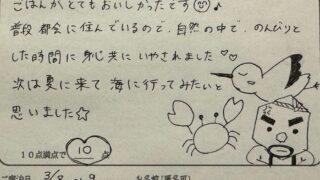 ごはんがとてもおいしかったです♪
普段都会に住んでいるので、自然の中で、のんびりと
した時間に身心共にいやされました♡♡
次は夏に来て海に行ってみたいと
思いました☆
10点満点で 10 点
ご宿泊日 3/8 ~ 9
お名前(匿名可)